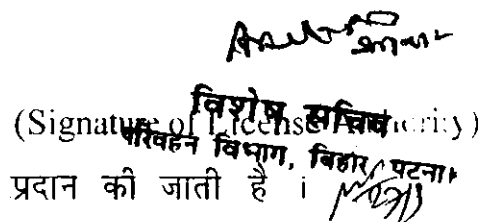 विशेष सचिव
(Signature of License Authority)
परिवहन विभाग, बिहार, पटना।
प्रदान की जाती है ।